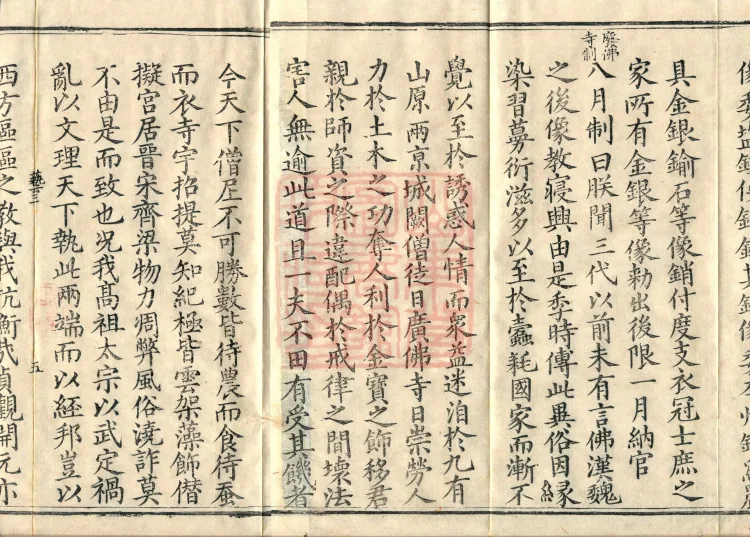 具金銀鍮石等像銷付度支衣冠士庶之
家所有金銀等像勑出後限一月納官
廢佛
寺制
八月制曰朕聞三代以前未有言佛漢魏
之後像教寖興由是季時傳此異俗因縁
染習蔓衍滋多以至於蠹耗國家而漸不
覺以至於誘惑人情而衆益迷洎於九有
山原兩京城闕僧徒日廣佛寺日崇勞人
力於土木之功奪人利於金寶之飾移君
親於師資之際違配偶於戒律之間壊法
害人無逾此道且一夫不田有受其饑者
今天下僧尼不可勝數皆待農而食待蚕
而衣寺宇招提莫知紀極皆雲架藻飾僣
擬宮居晉宋齊梁物力凋弊風俗澆詐莫
不由是而致也况我高祖太宗以武定禍
亂以文理天下執此兩端而以經邦豈以
藝三 五
西方區區之教與我抗衡哉貞觀開元亦